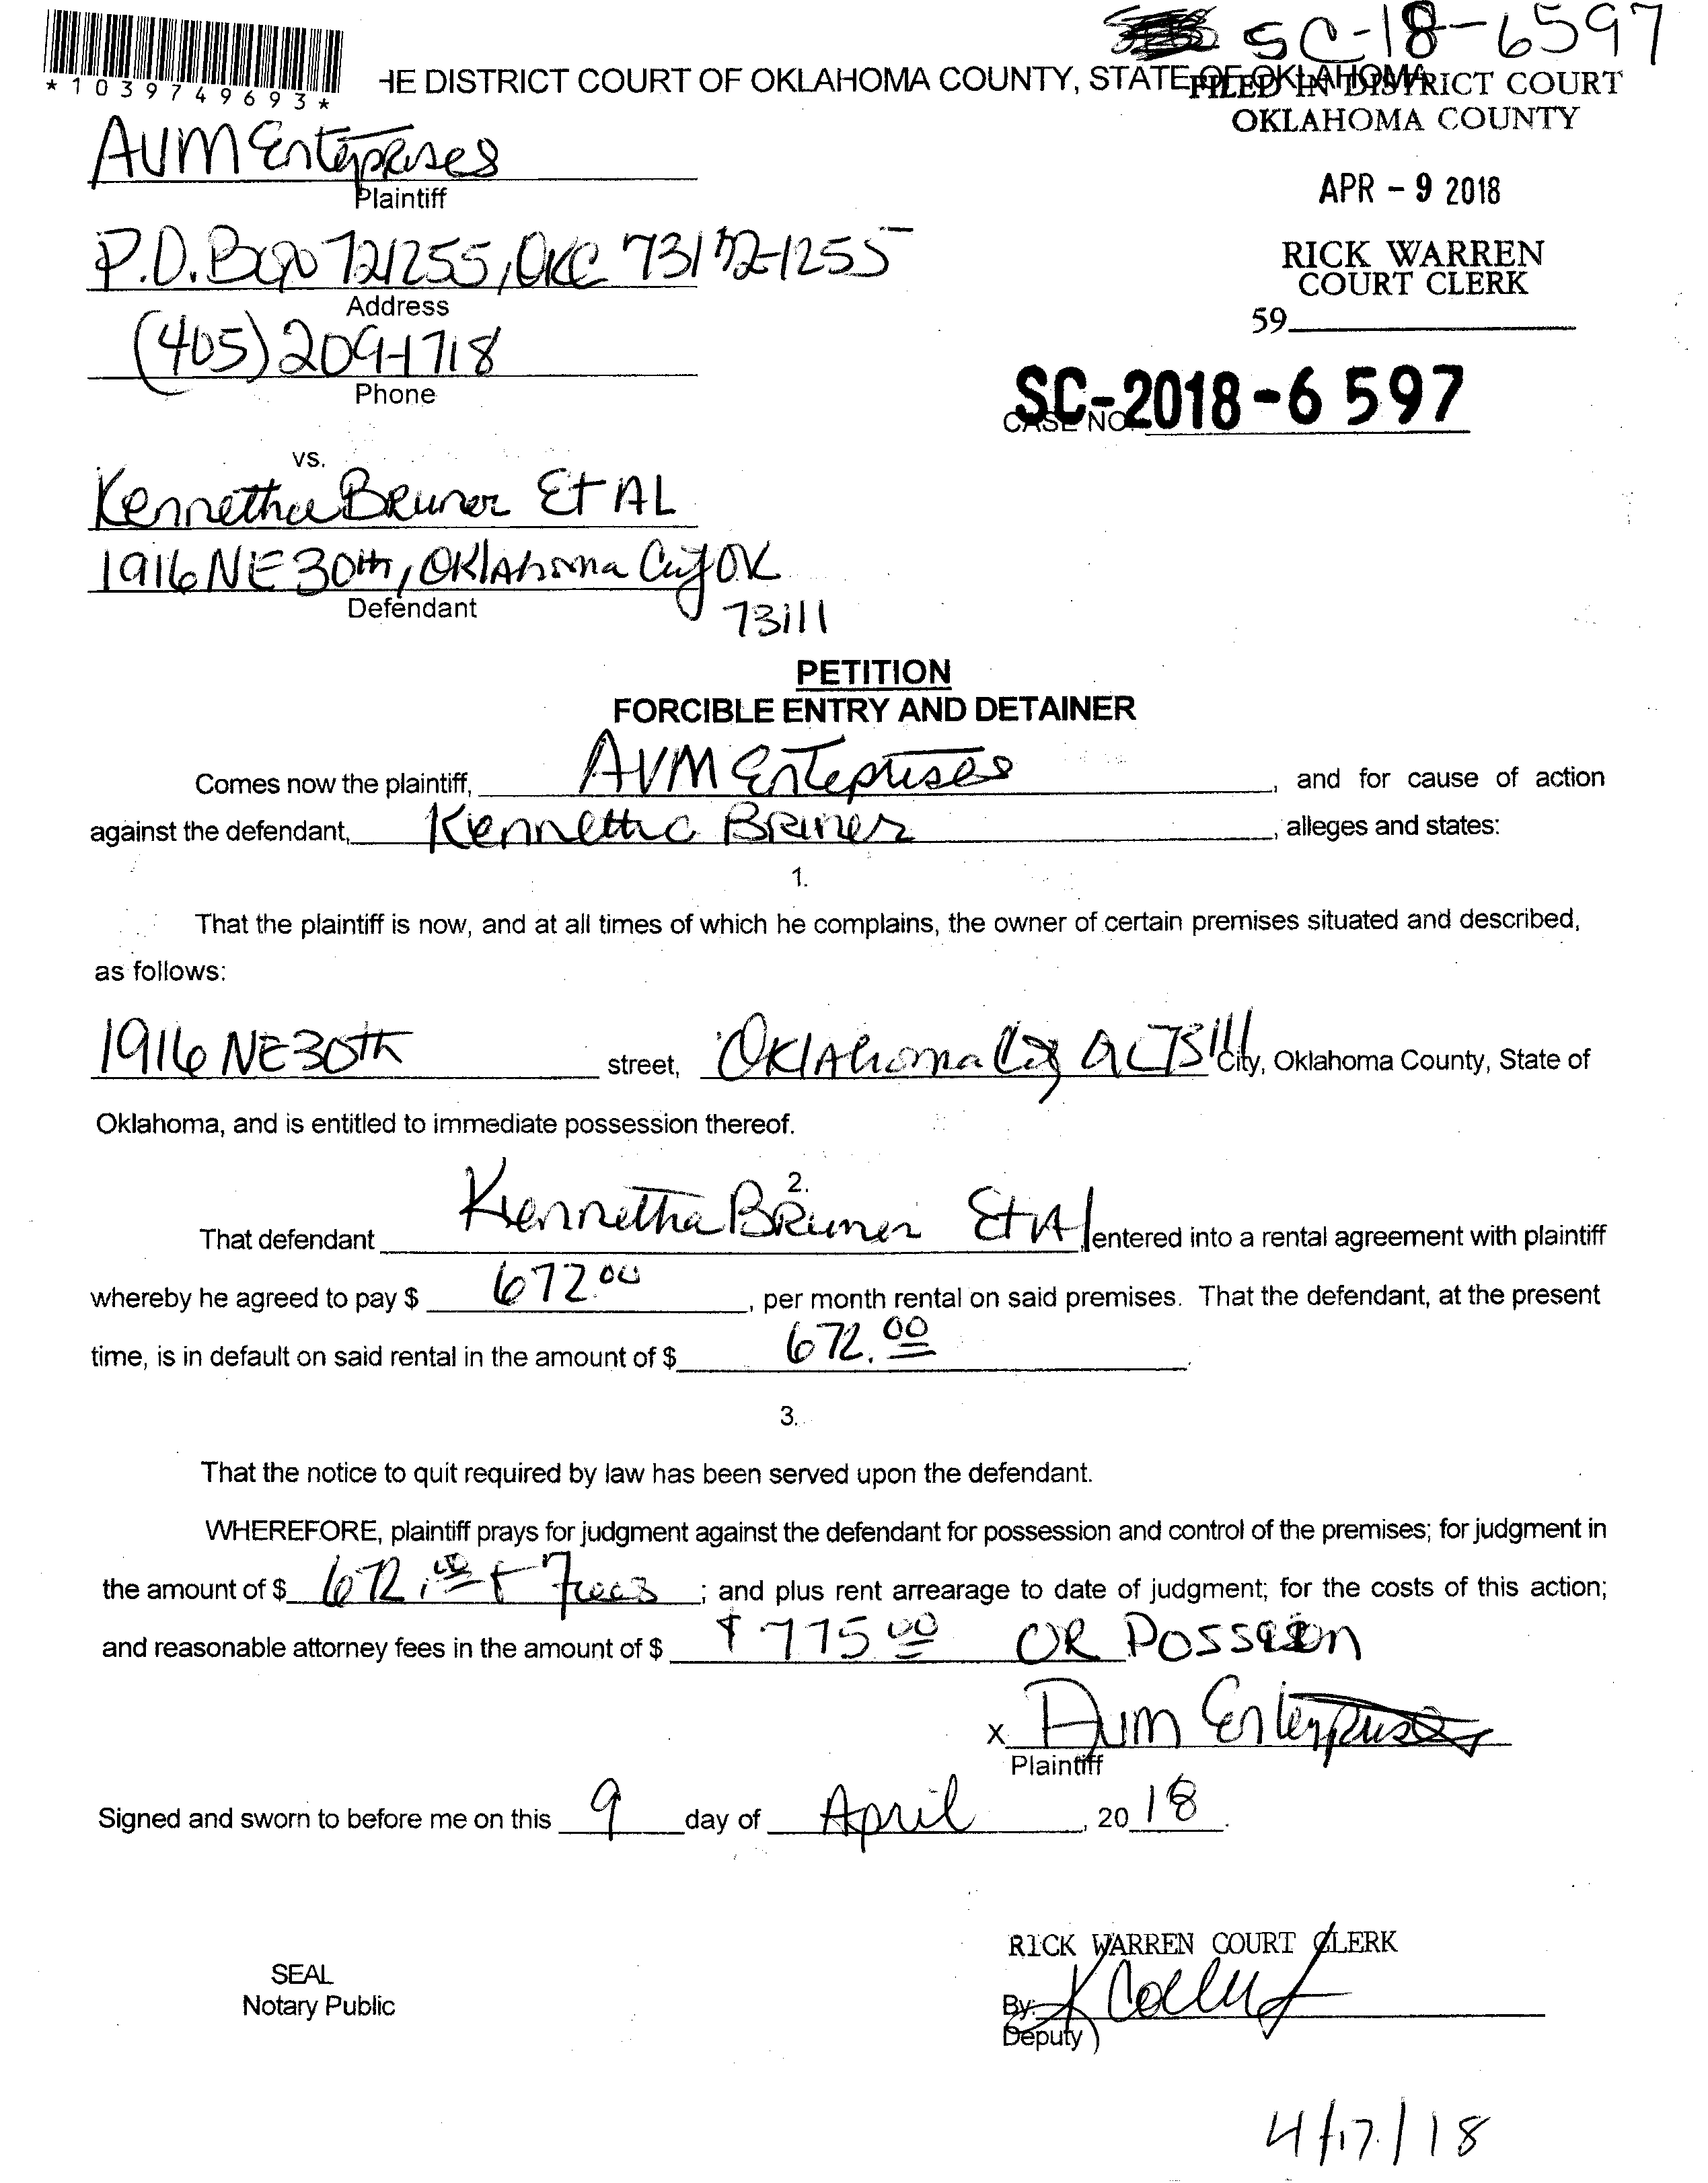 SC-18-6597
*1039749693*
HE DISTRICT COURT OF OKLAHOMA COUNTY, STATE OF OKLAHOMA
FILED IN DISTRICT COURT
OKLAHOMA COUNTY
AVM Enterprises
Plaintiff
APR - 9 2018
P.O. Box 721255, OKC 73172-1255
Address
RICK WARREN
COURT CLERK
59
(405) 209-1718
Phone
SC-2018-6597
CASE NO.
vs.
Kennetha Bruner Et AL
1916 NE 30th, Oklahoma City OK
Defendant
73111
PETITION
FORCIBLE ENTRY AND DETAINER
Comes now the plaintiff, AVM Enteprises, and for cause of action
against the defendant, Kennetha Bruner, alleges and states:
1.
That the plaintiff is now, and at all times of which he complains, the owner of certain premises situated and described,
as follows:
1916 NE 30th street, Oklahoma City OK 73111 City, Oklahoma County, State of
Oklahoma, and is entitled to immediate possession thereof.
2.
That defendant Kennetha Bruner Et Al entered into a rental agreement with plaintiff
whereby he agreed to pay $ 672.00, per month rental on said premises. That the defendant, at the present
time, is in default on said rental in the amount of $ 672.00.
3.
That the notice to quit required by law has been served upon the defendant.
WHEREFORE, plaintiff prays for judgment against the defendant for possession and control of the premises; for judgment in
the amount of $ 672.00 + Fees; and plus rent arrearage to date of judgment; for the costs of this action;
and reasonable attorney fees in the amount of $ 775.00 OR
x AVM Enterprises
Plaintiff
Signed and sworn to before me on this 9 day of April, 2018.
RICK WARREN COURT CLERK
SEAL
Notary Public
By:
Deputy
4/17/18